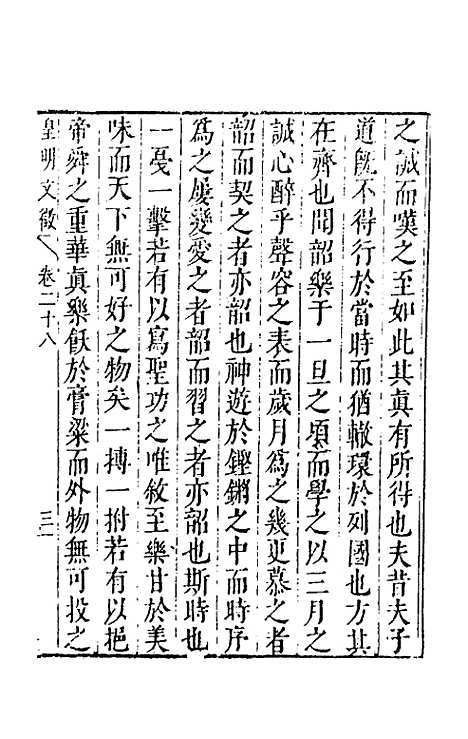 之誠而嘆之至如此其真有所得也夫昔夫子
道旣不得行於當時而猶轍環於列國也方其
在齊也聞韶樂于一旦之頃而學之以三月之
誠心醉乎聲容之表而歲月爲之幾更慕之者
韶而契之者亦韶也神遊於鏗鏘之中而時序
爲之屢變愛之者韶而習之者亦韶也斯時也
一戛一擊若有以寫聖功之唯敘至樂甘於美
味而天下無可好之物矣一搏一拊若有以挹
帝舜之重華真樂飫於膏粱而外物無可投之
皇明文徵 卷二十八 三